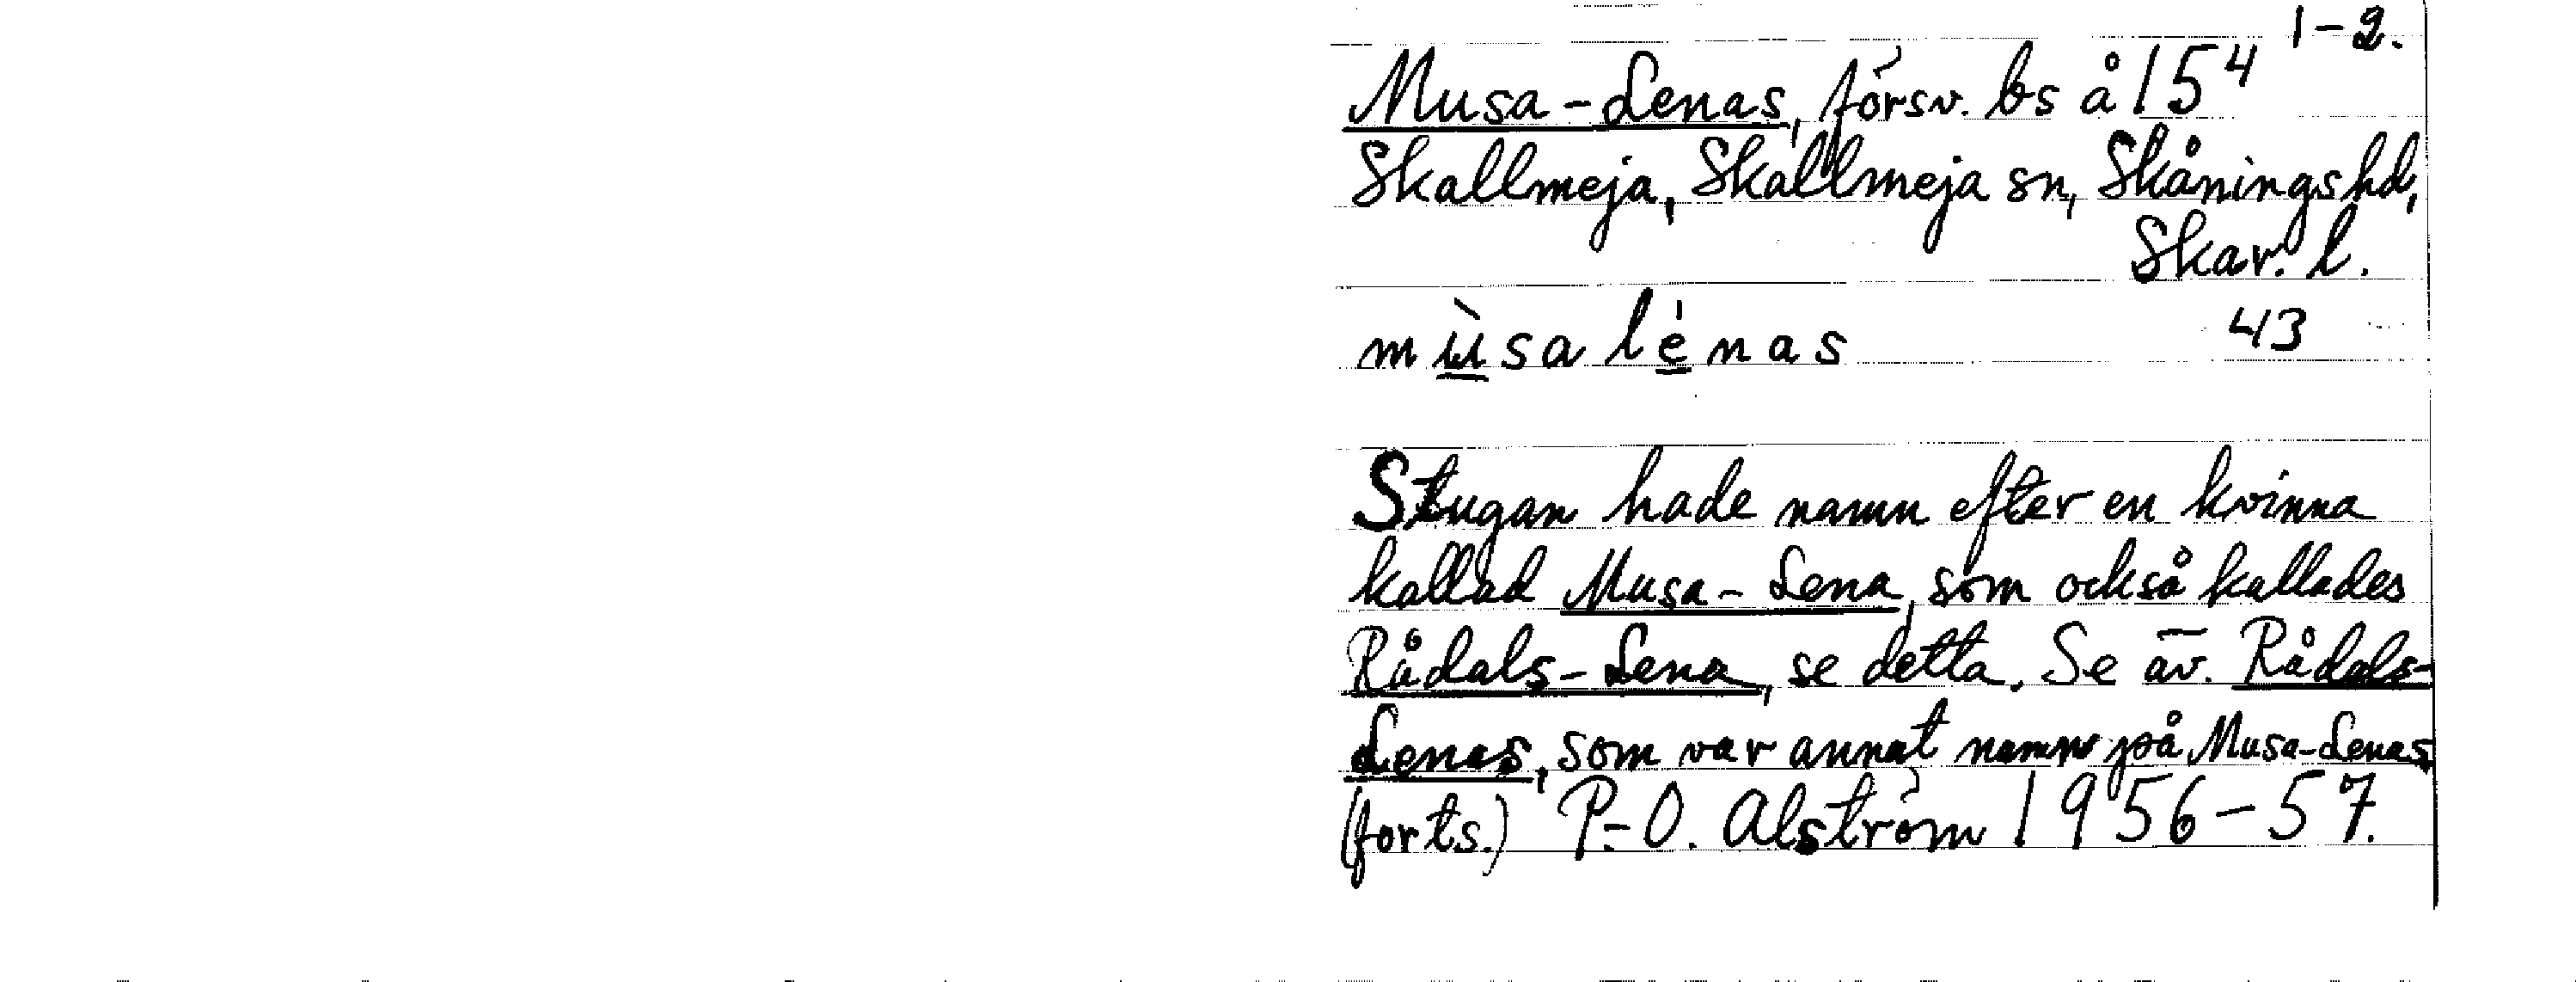 1-2.
Musa-Lenas, försv. bs å 15⁴
Skallmeja, Skallmeja sn, Skånings hd,
Skar. l.
mùsa lénas 43
Stugan hade namn efter en kvinna
kallad Musa-Lena, som också kallades
Rådals-Lena, se detta. Se äv. Rådals-
Lenas, som var annat namn på Musa-Lenas.
(forts.) P.-O. Alström 1956-57.